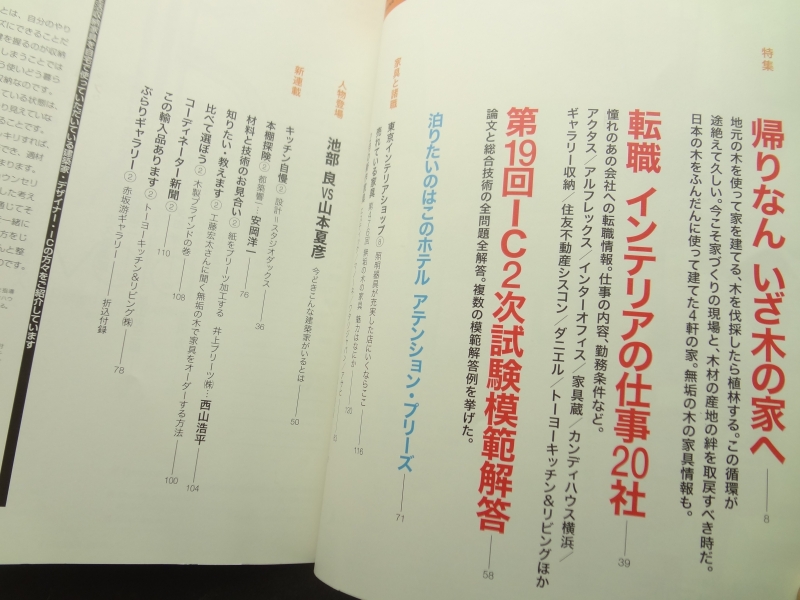 特集
帰りなん いざ木の家へ 8
地元の木を使って家を建てる、木を伐採したら植林する。この循環が
途絶えて久しい。今こそ家づくりの現場と、木材の産地の絆を取戻すべき時だ。
日本の木をふんだんに使って建てた4軒の家。無垢の木の家具情報も。
転職 インテリアの仕事20社 39
憧れのあの会社への転職情報。仕事の内容、勤務条件など。
アクタス/アルフレックス/インターオフィス/家具蔵/カンディハウス横浜/
ギャラリー収納/住友不動産シスコン/ダニエル/トーヨーキッチン&リビングほか
第19回IC2次試験模範解答 58
論文と総合技術の全問題全解答。複数の模範解答例を挙げた。
泊りたいのはこのホテル アテンション・プリーズ 71
東京インテリアショップ⑧ 照明器具が充実した店にいくならここ 116
人物登場
池部 良VS山本夏彦 今どきこんな建築家がいるとは 50
新連載
キッチン自慢② 設計=スタジオダックス
本棚探険② 都築響一 36
材料と技術のお見合い② 紙をプリーツ加工する 井上プリーツ㈱…西山浩平 104
知りたい・教えます② 工藤宏太さんに聞く無垢の木で家具をオーダーする方法 100
比べて選ぼう② 木製ブラインドの巻 108
コーディネーター新聞② 110
この輸入品あります② トーヨーキッチン&リビング㈱ 78
ぶらりギャラリー② 赤坂游ギャラリー 折込付録
安岡洋一 76
とは、自分のやり
ズにできることだ
を握るのが収納
しまうことでは
う使いどう暮ら
収納なのです。
いる状態は、
ることです。
ッキリすれば、
でき、適材
まります。
ウンセリ
した考え
通じてそ
一緒に
方をじ
んと整
のです。